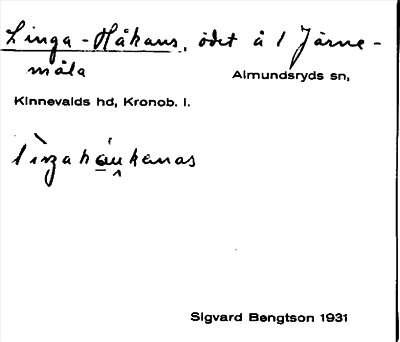 Linga-Håkans, ödet å 1 Järne-
måla
Almundsryds sn,
Kinnevalds hd, Kronob. l.
Sigvard Bengtson 1931